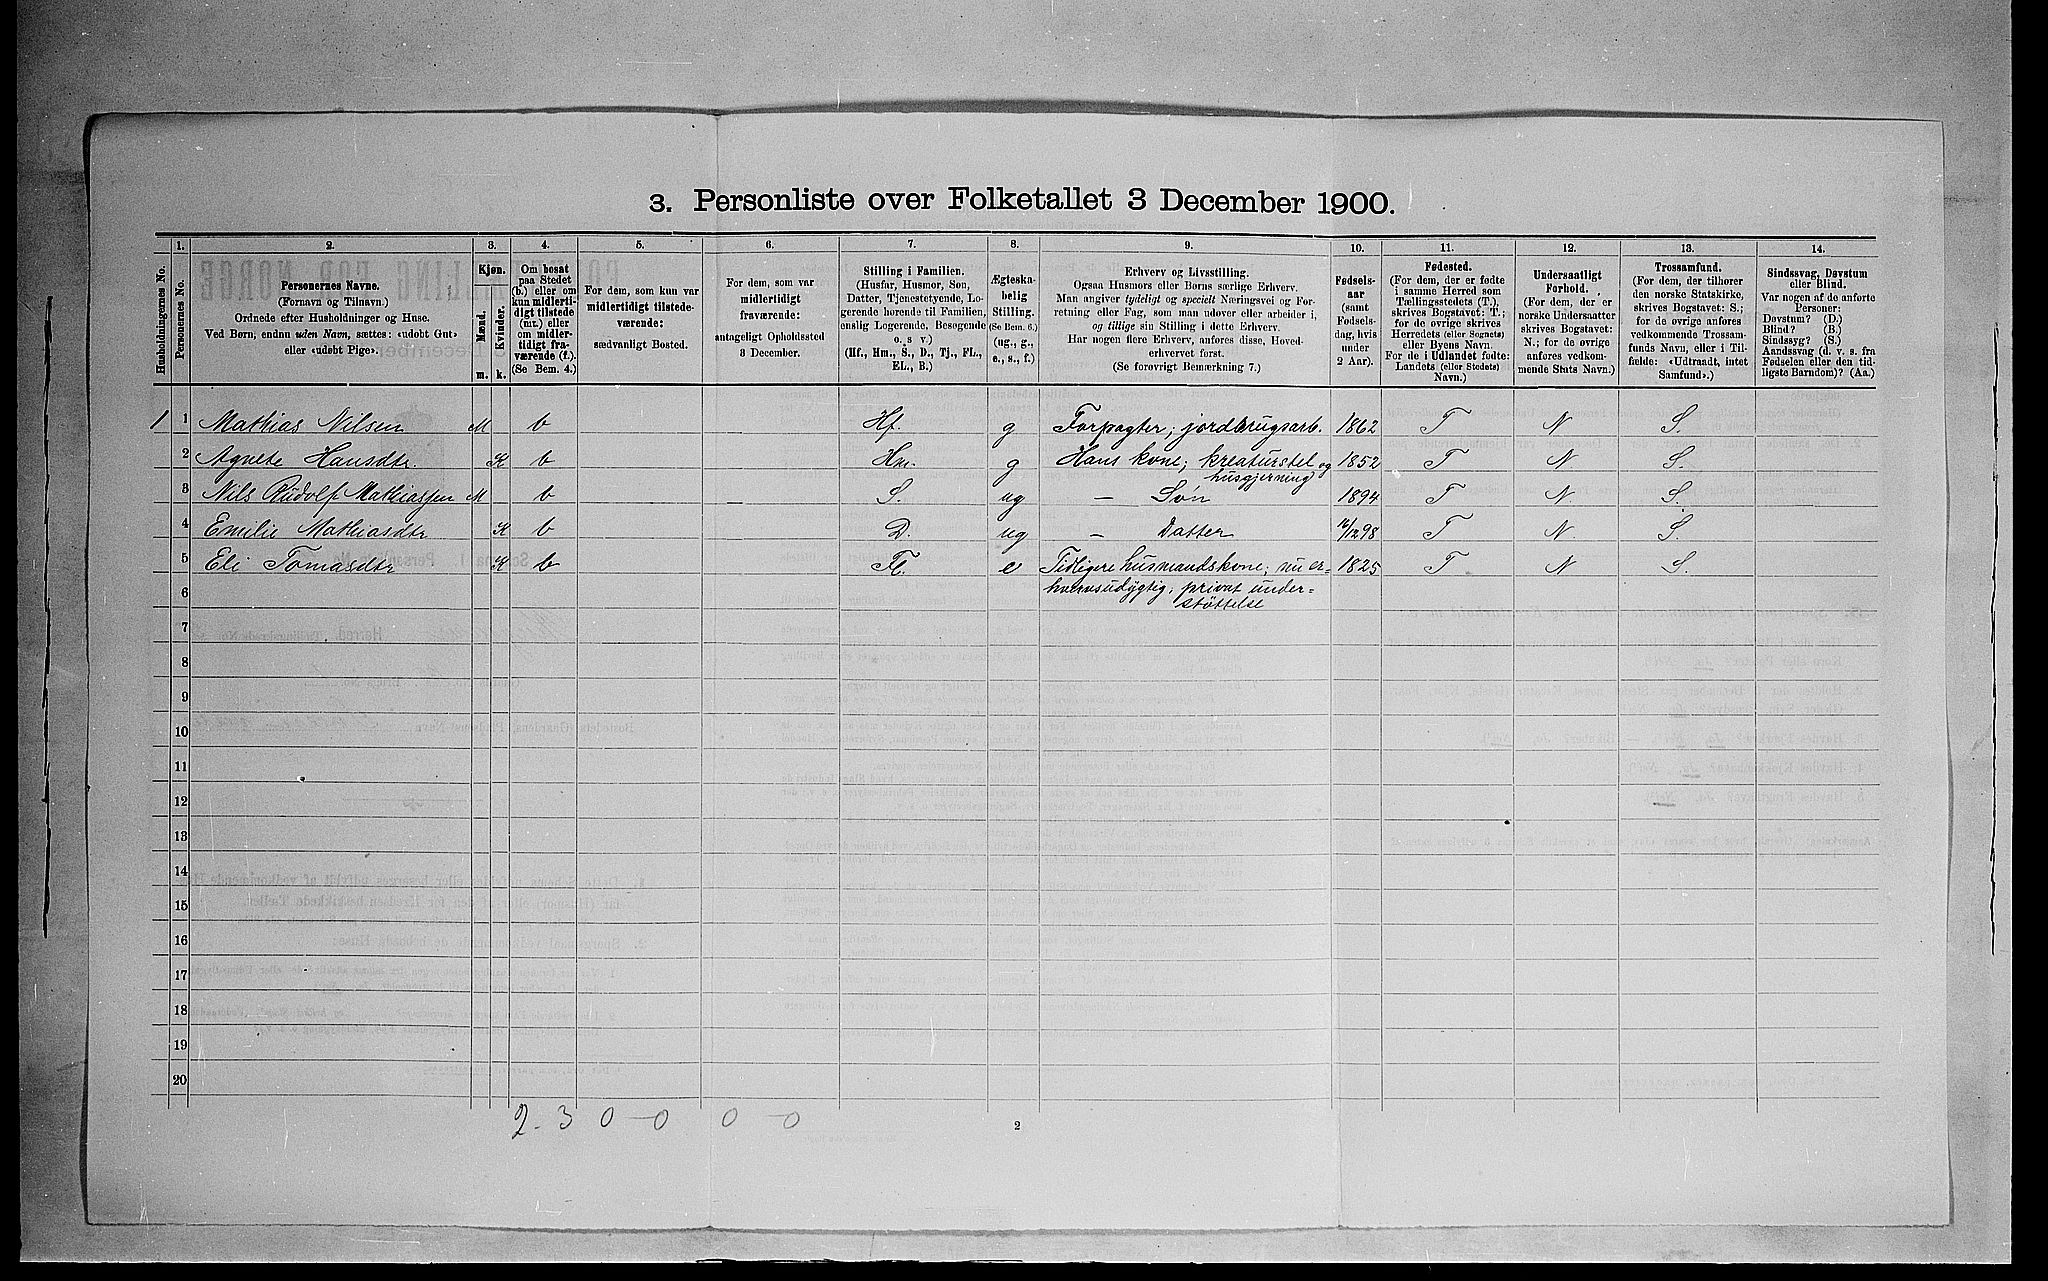 3. Personliste over Folketallet 3 December 1900.
1. 2. 3. 4. 5. 6. 7. 8. 9. 10. 11. 12. 13. 14.
Husholdningernes No.
Personernes No.
Personernes Navne.
(Fornavn og Tilnavn.)
Ordnede efter Husholdninger og Huse.
Ved Børn, endnu uden Navn, sættes: «udøbt Gut»
eller «udøbt Pige».
Kjøn.
Mænd.
Kvinder.
m. k.
Om bosat
paa Stedet
(b.) eller om
kun midlerti-
digt tilstede
(mt.) eller
om midler-
tidigt fra-
værende (f.).
(Se Bem. 4.)
For dem, som kun var
midlertidigt tilstede-
værende:
sædvanligt Bosted.
For dem, som var
midlertidigt
fraværende:
antageligt Opholdssted
3 December.
Stilling i Familien.
(Husfar, Husmor, Søn,
Datter, Tjenestetyende, Lo-
gerende hørende til Familien,
enslig Logerende, Besøgende
o. s v.)
(Hf., Hm., S., D., Tj., FL.,
EL., B.)
Ægteska-
belig
Stilling.
(Se Bem. 6.)
(ug., g.,
e., s., f.)
Erhverv og Livsstilling.
Ogsaa Husmors eller Børns særlige Erhverv.
Man angiver tydeligt og specielt Næringsvei og For-
retning eller Fag, som man udøver eller arbeider i,
og tillige sin Stilling i dette Erhverv.
Har nogen flere Erhverv, anføres disse, Hoved-
erhvervet først.
(Se forøvrigt Bemærkning 7.)
Fødsels-
aar
(samt
Fødsels-
dag, hvis
under
2 Aar).
Fødested.
(For dem, der er fødte
i samme Herred som
Tællingsstedets (T.),
skrives Bogstavet: T.;
for de øvrige skrives
Herredets (eller Sognets)
eller Byens Navn.
For de i Udlandet fødte:
Landets (eller Stedets)
Navn.)
Undersaatligt
Forhold.
(For dem, der er
norske Undersaatter
skrives Bogstavet:
N.; for de øvrige
anføres vedkom-
mende Stats Navn.)
Trossamfund.
(For dem, der tilhører
den norske Statskirke,
skrives Bogstavet: S.;
for de øvrige anføres
vedkommende Trossam-
funds Navn, eller i Til-
fælde: «Udtraadt, intet
Samfund».)
Sindssvag, Døvstum
eller Blind.
Var nogen af de anførte
Personer:
Døvstum? (D.)
Blind? (B.)
Sindssyg? (S.)
Aandssvag (d. v. s. fra
Fødselen eller den tid-
ligste Barndom)? (Aa.)
1 1 Mathias Nilsen M b Hf. g Forpagter; jordbrugsarb. 1862 T N S.
2 Agnete Hansdtr. K b Hm. g Hans kone; kreaturstel og 1852 T N S.
husgjerning
3 Nils Rudolf Mathiassen M b S. ug – Søn 1894 T N. S.
4 Emilie Mathiasdtr K b D. ug – Datter /12 98 T N. S.
5 Eli Tomasdtr K b FL. e Tidligere husmandskone; nu er= 1825 T N S.
6 hvervsudygtig, privat under=
støttelse
7
8
9
10
11
12
13
14
15
16
17
18
19
20
2 - 3 0 – 0 0 – 0
2